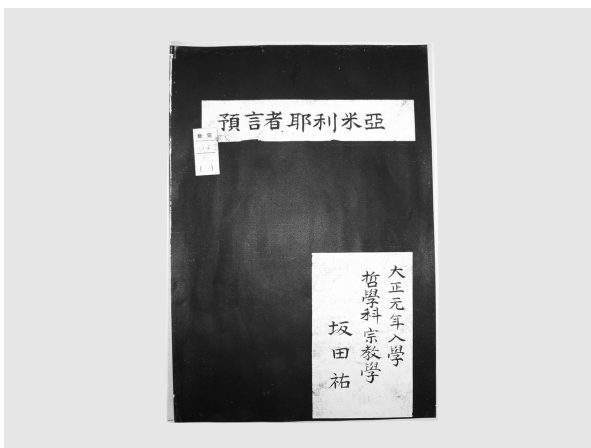 預言者耶利米亞
大正元年入學
哲學科宗教學
坂田祐